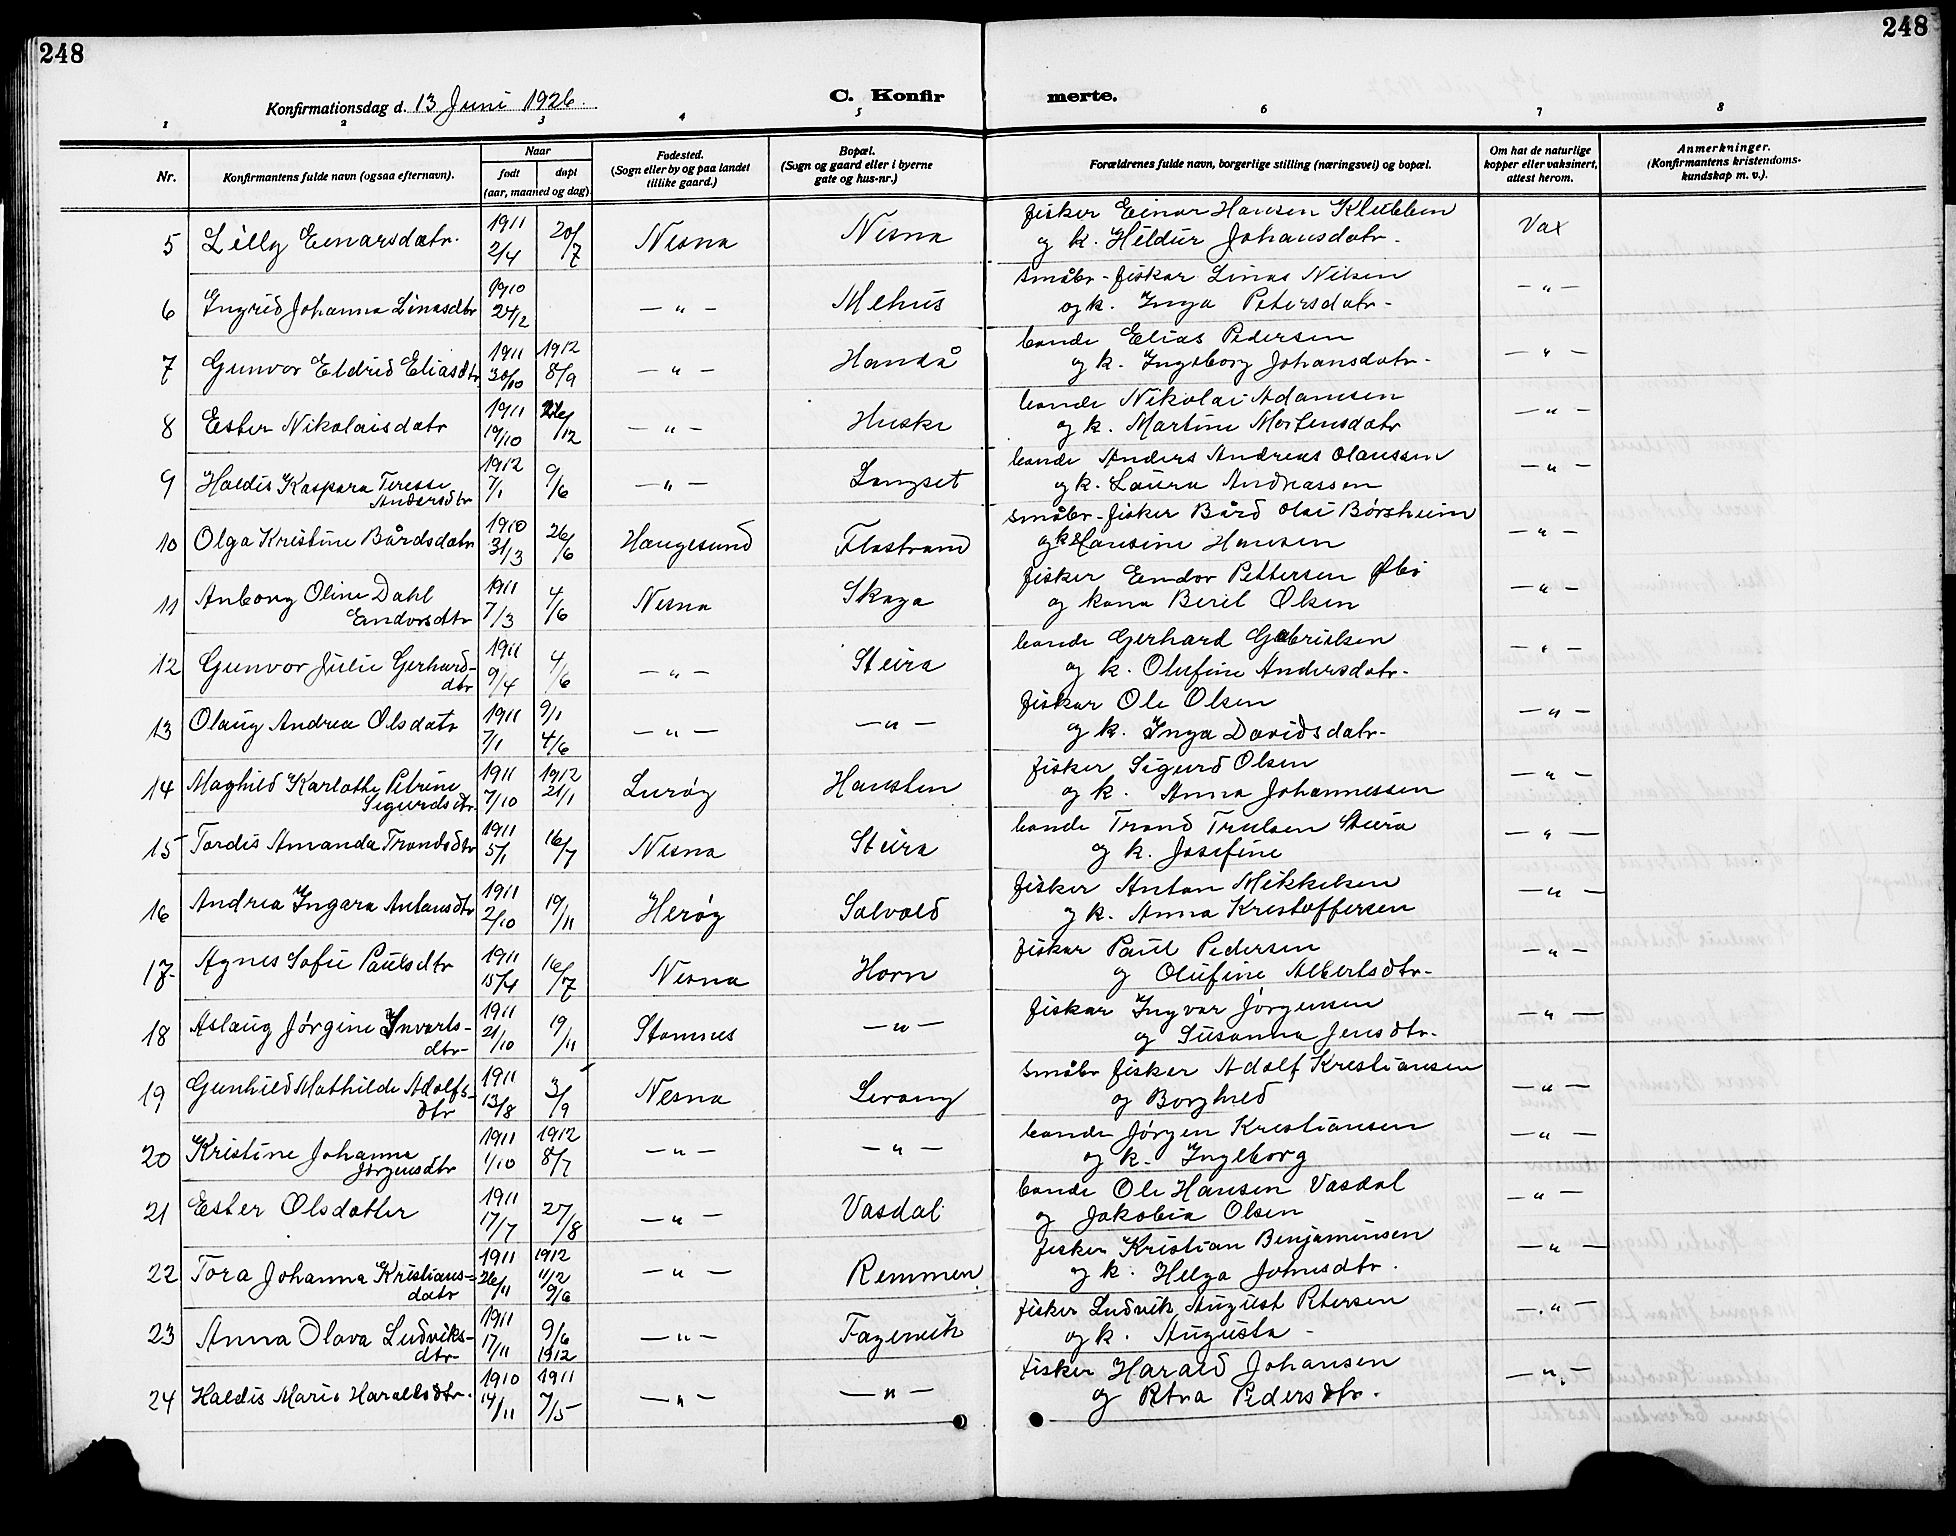 248
248
Konfirmationsdag d. 13 Juni 1926.
C. Konfirmerte.
1 2 3 4 5 6 7 8
Nr.
Konfirmantens fulde navn (ogsaa efternavn).
Naar
født døpt
(aar, maaned og dag)
Fødested.
(Sogn eller by og paa landet
tillike gaard.)
Bopæl.
(Sogn og gaard eller i byerne
gate og hus-nr.)
Forældrenes fulde navn, borgerlige stilling (næringsvei) og bopæl.
Om hat de naturlige
kopper eller vaksinert,
attest herom.
Anmerkninger.
(Konfirmantens kristendoms-
kundskap m. v.).
5 Lilly Einarsdatr. 1911 2/4 20/7 Nesna Nesna fisker Einar Hansen Klubben
og k. Hildur Johansdatr. Vax
6 Ingrid Johanna Linasdtr 1910 24/2 — " — Mehus småbr-fisker Linas Nilsen
og k. Inga Petersdatr- — " —
7 Gunvor Eldrid Eliasdtr 1911 30/10 1912 8/9 — " — Handå bonde Elias Pedersen
og k. Ingeborg Johansdatr- — " —
8 Ester Nikolaisdatr 1911 19/10 26/12 — " — Huske bonde Nikolai Adamsen
og k. Martine Mortensdatr — " —
9 Haldis Kaspara Teresse
Andersdtr 1912 7/1 9/6 — " — Langset bonde Anders Andreas Olaussen
og k. Laura Andreassen — " —
10 Olga Kristine Bårdsdatr 1910 31/3 26/6 Haugesund Flostrand småbr-fisker Bård Olai Børsheim
og k Hansine Hansen — " —
11 Anborg Oline Dahl
Endorsdtr 1911 7/3 4/6 Nesna Skaga fisker Endor Pettersen Øbø
og kona Beril Olsen — " —
12 Gunvor Julie Gerhard-
dtr 1911 9/4 4/6 — " — Steira bonde Gerhard Gabrielsen
og k. Olufine Andersdatr- — " —
13 Olaug Andrea Olsdatr 1911 7/1 9/1 4/6 — " — — " — fisker Ole Olsen
og k. Inga Davidsdatr- — " —
14 Maghild Karlotte Petrine
Sigurdsdtr 1911 7/10 1912 21/1 Lurøy Hansten fisker Sigurd Olsen
og k. Anna Johannessen — " —
15 Tordis Amanda Trondsdtr 1911 5/1 16/7 Nesna Steira bonde Trond Trulsen Steira
og k. Josefine — " —
16 Andrea Ingara Antonsdtr 1911 2/10 19/11 Herøy Solvold fisker Anton Mikkelsen
og k. Anna Kristoffersen — " —
17 Agnes Sofie Paulsdtr 1911 15/4 16/7 Nesna Horn fisker Paul Pedersen
og Olufine Albertsdtr- — " —
18 Aslaug Jørgine Invarts-
dtr- 1911 21/10 19/11 Stamnes — " — fisker Ingvar Jørgensen
og Susanna Jensdtr- — " —
19 Gunhild Mathilde Adolfs-
dtr 1911 13/8 3/9 Nesna Levang småbr fisker Adolf Kristiansen
og Borghild — " —
20 Kristine Johanna
Jørgensdtr 1911 1/10 1912 8/7 — " — — " — bonde Jørgen Kristiansen
og k. Ingeborg — " —
21 Ester Olsdatter 1911 17/7 27/8 — " — Vasdal bonde Ole Hansen Vasdal
og Jakobia Olsen — " —
22 Tora Johanna Kristians-
datr 1911 26/11 1912 11/2 9/6 — " — Remmen fisker Kristian Benjaminsen
og k. Helga Johnsdtr. — " —
23 Anna Olava Ludviks-
dtr 1911 17/11 9/6 1912 — " — Fagervik fisker Ludvik August Petersen
og k. Augusta - — " —
24 Haldis Marie Haraldsdtr. 1910 14/11 1911 7/15 — " — — " — fisker Harald Johansen
og Petra Pedersdtr. — " —